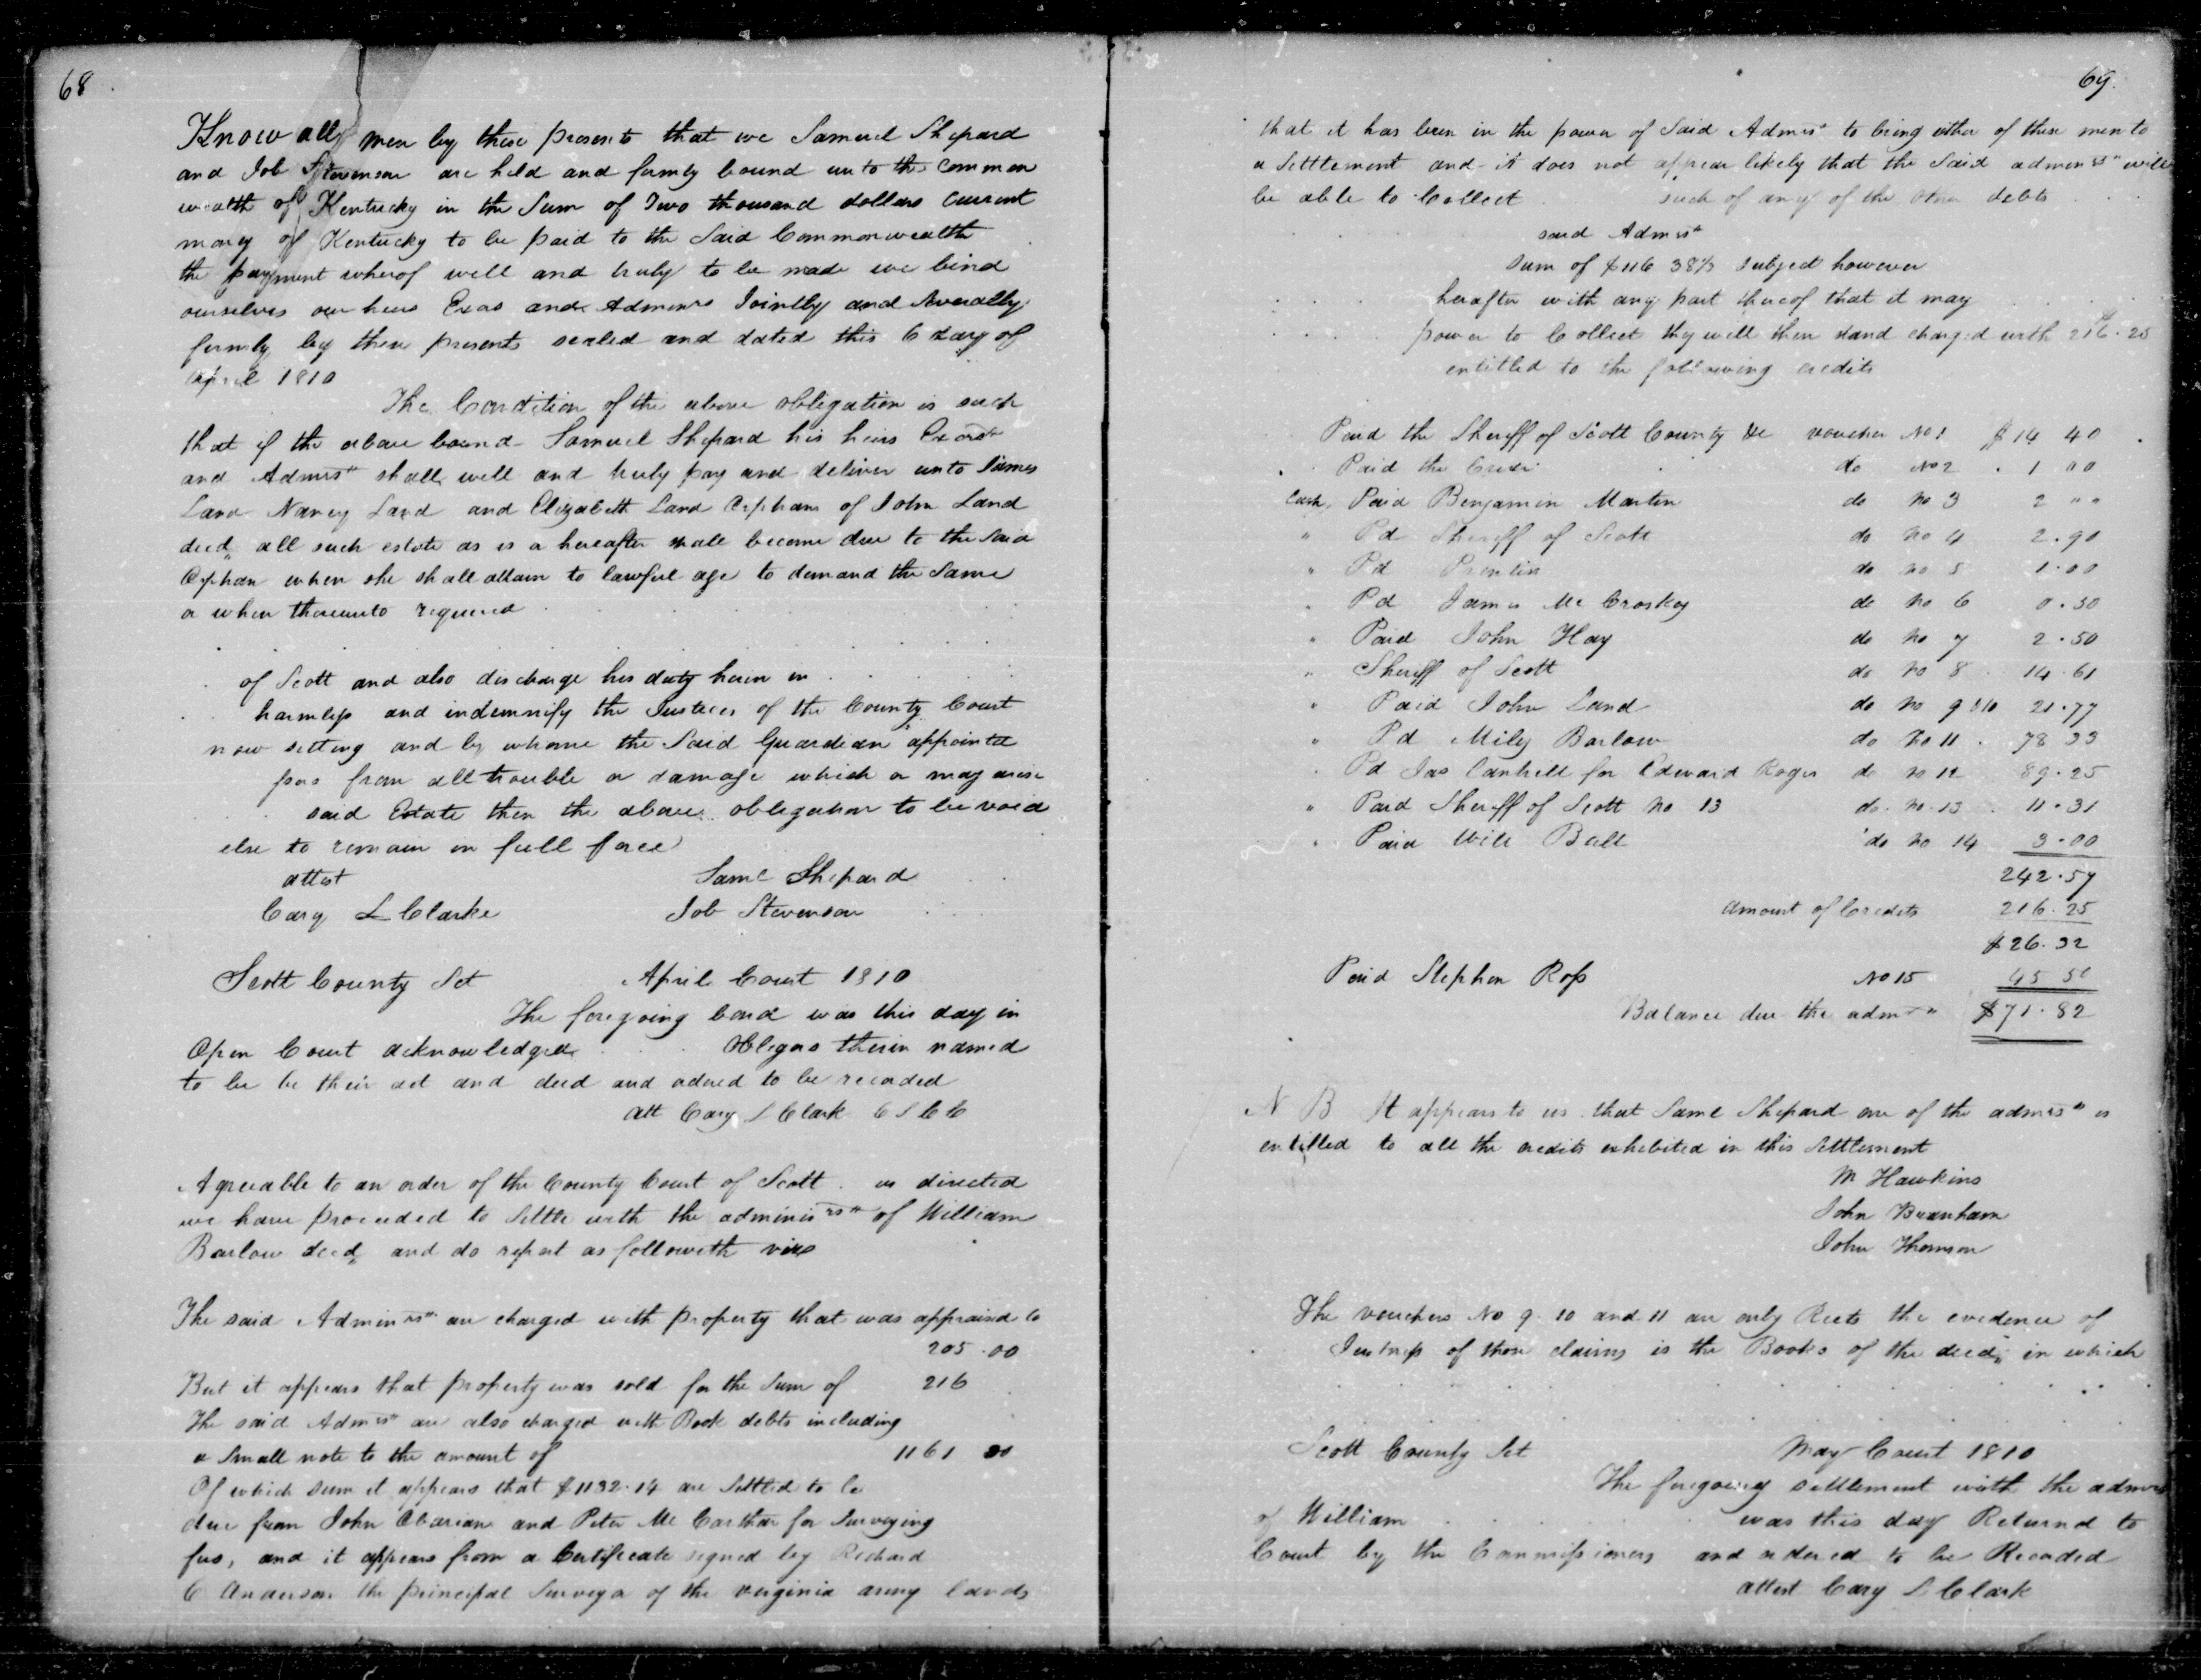 68
Know all men by these presents that we Samuel Shepard
and Job Stevenson are held and firmly bound unto the Common
wealth of Kentucky in the Sum of Two thousand dollars current
money of Kentucky to be paid to the Said Commonwealth
the payment wherof well and truly to be made we bind
ourselves our heirs Exos and Admenrs Jointly and Severally
firmly by these presents sealed and dated this 6 day of
April 1810
The Condition of the above obligation is such
that if the above bound Samuel Shepard his heirs Exors
and Admrs shall well and truly pay and deliver unto James
Land Nancy Land and Elizabeth Land Orphans of John Land
decd all such estate as is a hereafter shall become due to the Said
Orphan when she shall attain to lawful age to demand the Same
a when thereunto required
of Scott and also discharge his duty herein in
harmless and indemnify the Justices of the County Court
now sitting and by whome the Said Guardian appointd
pos from all trouble or damage which a may arise
said Estate then the above obligation to be void
else to remain in full force
attest Saml Shepard
Cary L Clarke Job Stevenson
Scott County Set April Court 1810
The foregoing bond was this day in
Open Court acknowledged obligors therein named
to be be their act and deed and ordered to be recorded
att Cary L Clark C S C C
Agreeable to an order of the County Court of Scott us directed
we have proceeded to Settle with the adminisrs of William
Barlow decd and do report as followeth viz
The said Adminrs are charged with property that was appraised to
205.00
But it appears that property was sold for the Sum of 216
The said Admrs are also charged with Book debts including
a Small note to the amount of 1161 00
Of which sum it appears that $1132.14 are Settled to be
due from John Obarian and Peter Mc Carthar for Surveying
fees, and it appears from a Certificate signed by Richard
C Anderson the principal Surveyor of the virginia army lands
69.
that it has been in the power of Said Admrs to bring either of these men to
a Settlement and it does not appear likely that the Said admenrs will
be able to Collect such of any of the other debts
said Admrs
sum of $116 38½ subject however
herafter with any part thereof that it may
power to Collect they will then stand charged with 216.25
entitled to the following credits
Paid the Sheriff of Scott County &c voucher No 1 $14 40
Paid the do No 2 1 00
Cash, Paid Benjamin Martin do No 3 2 " "
" Pd Sheriff of Scott do No 4 2.90
" Pd Prentis do No 5 1.00
" Pd James Mc Croskey do No 6 0.50
" Paid John Hay do No 7 2.50
" Sheriff of Scott do No 8 14.61
" Paid John Land do No 9 &10 21.77
" Pd Mily Barlow do No 11 78 33
" Pd Jas Cantrell for Edward Roger do No 12 89.25
" Paid Sheriff of Scott No 13 do No 13 11.31
" Paid Will Ball do No 14 3.00
242.57
amount of Credits 216.25
$26.32
Paid Stephen Ross No 15 45 50
Balance due the admrs $71.82
N B It appears to us that Saml Shepard one of the admrs is
entitled to all the credits exhibited in this Settlement
M Hawkins
John Branham
John Thomson
The vouchers No 9. 10 and 11 are only Rects the evidence of
Justness of those claims is the Books of the decd in which
Scott County Set May Court 1810
The foregoing settlement with the admrs
of William was this day Returnd to
Court by the Commissioners and ordered to be Recorded
attest Cary L Clark